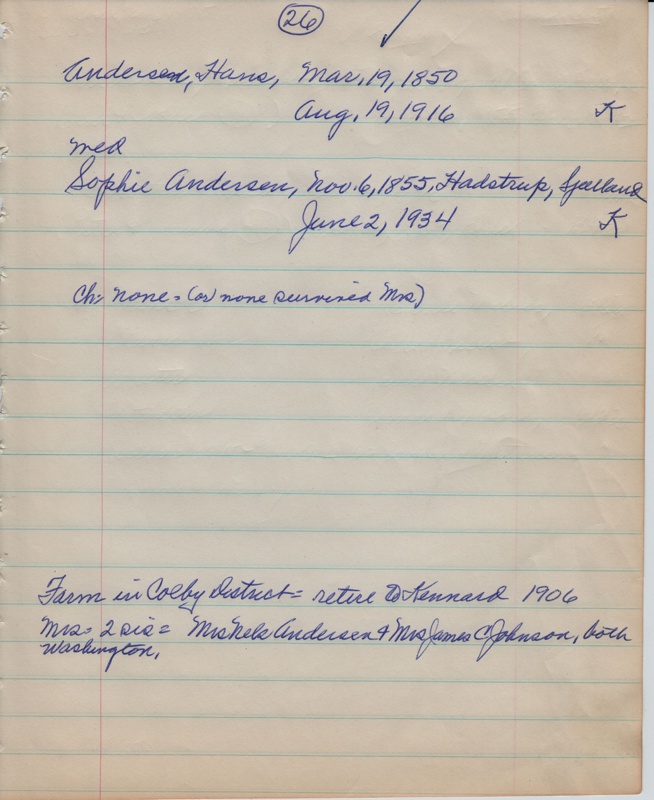 26
Andersen, Hans, Mar, 19, 1850
Aug, 19, 1916 K
med
Sophie Andersen, Nov. 6, 1855, Hadstrup, Sjelland
June 2, 1934 K
Ch: none - (or none survived Mrs)
Farm in Colby District = retire to Kennard 1906
Mrs - 2 sis = Mrs Nels Andersen & Mrs James C Johnson, both
Washington,